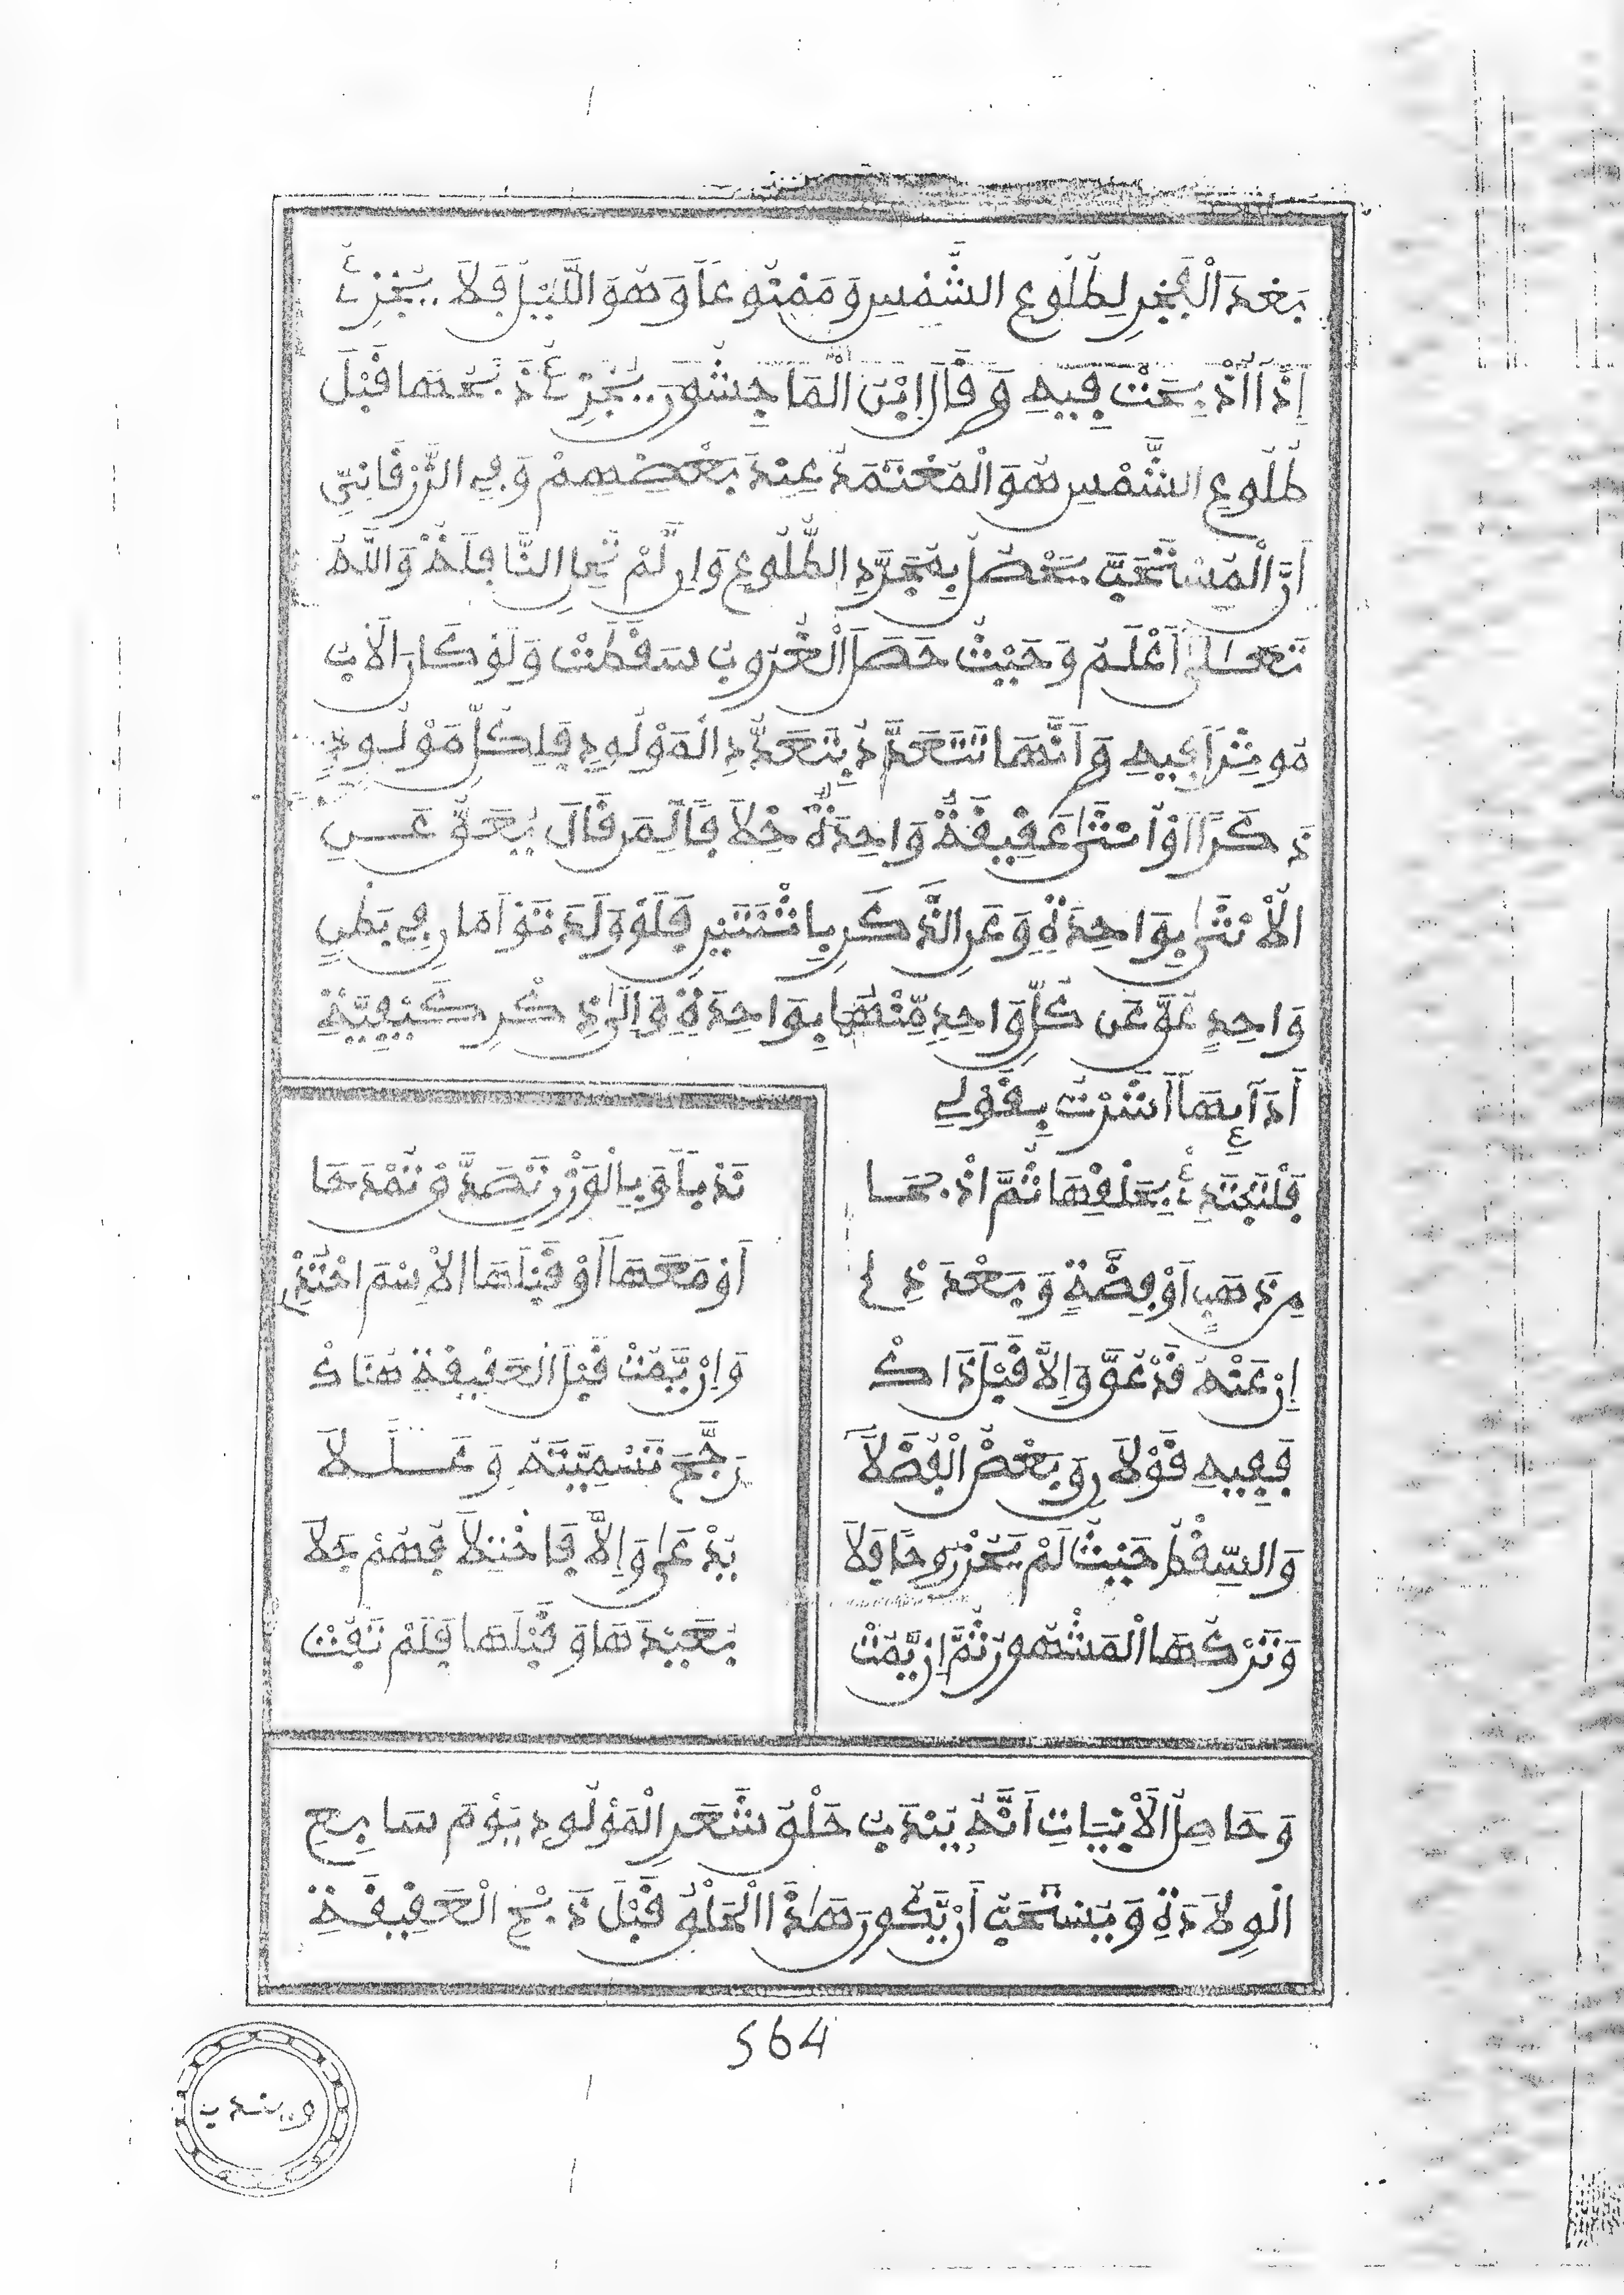 بَعْدَ الْفَجْرِ لِطُلُوعِ الشَّمْسِ وَمَمْنُوعًا وَهُوَ اللَّيْلُ فَلَا يُجْزِئُ
إِذَا ذُبِحَتْ فِيهِ وَقَالَ ابْنُ الْمَاجِشُونَ يُجْزِئُ ذَبْحُهَا قَبْلَ
طُلُوعِ الشَّمْسِ هُوَ الْمُعْتَمَدُ عِنْدَ بَعْضِهِمْ وَفِي الزُّرْقَانِيِّ
أَنَّ الْمُسْتَحَبَّ يَحْصُلُ بِمُجَرَّدِ الطُّلُوعِ وَإِن لَّمْ تَحِلِّ النَّافِلَةُ وَاللَّهُ
تَعَالَى أَعْلَمُ وَحَيْثُ حَصَلَ الْغُرُوبُ سَقَطَتْ وَلَوْ كَانَ الْأَبُ
مُوسِرًا فِيهِ وَأَنَّهَا تَتَعَدَّدُ بِتَعَدُّدِ الْمَوْلُودِ فَلِكُلِّ مَوْلُودٍ
ذَكَرًا أَوْ أُنْثَى عَقِيقَةٌ وَاحِدَةٌ خِلَافًا لِمَن قَالَ يُعَقُّ عَنِ
الْأُنْثَى بِوَاحِدَةٍ وَعَنِ الذَّكَرِ بِاثْنَتَيْنِ فَلَوْ وَلَدَ تَوْأَمَانِ فِي بَطْنٍ
وَاحِدٍ عَقَّ عَن كُلِّ وَاحِدٍ مِّنْهُمَا بِوَاحِدَةٍ وَإِلَى ذِكْرِ كَيْفِيَّةِ
أَدَائِهَا أَشَرْتُ بِقَوْلِي
فَلْتَبْتَدِئْ بِحَلْقِهَا ثُمَّ اذْبَحَا نَدْبًا وَبِالْوَزْنِ تَصَدَّقْ تُمْدَحَا
مِن ذَهَبٍ أَوْ فِضَّةٍ وَبَعْدَ ذِي أَوْ مَعَهَا أَوْ قَبْلَهَا الْاِسْمَ احْتُذِي
إِنْ عَنْهُ قَدْ عُقَّ وَإِلَّا قَبْلَ ذَاكْ وَإِنْ يَّمُتْ قَبْلَ الْعَقِيقَةِ هُنَاكْ
فَفِيهِ قَوْلَانِ وَبَعْضُ الْفُضَلَا رَجَّحَ تَسْمِيَتَهُ وَعَلَّلَا
وَالسِّقْطُ حَيْثُ لَمْ يَحُزْ رُوحًا فَلَا يُدْعَى وَإِلَّا فَاخْتِلَافُهُمْ جَلَا
وَتَرْكُهَا الْمَشْهُورُ ثُمَّ إِنْ يَّمُتْ بُعَيْدَهَا وَقَبْلَهَا فَلَمْ تَفُتْ
وَحَاصِلُ الْأَبْيَاتِ أَنَّهُ يُنْدَبُ حَلْقُ شَعَرِ الْمَوْلُودِ يَوْمَ سَابِعِ
الْوِلَادَةِ وَيُسْتَحَبُّ أَنْ يَّكُونَ هَذَا الْحَلْقُ قَبْلَ ذَبْحِ الْعَقِيقَةِ
564
ويندب